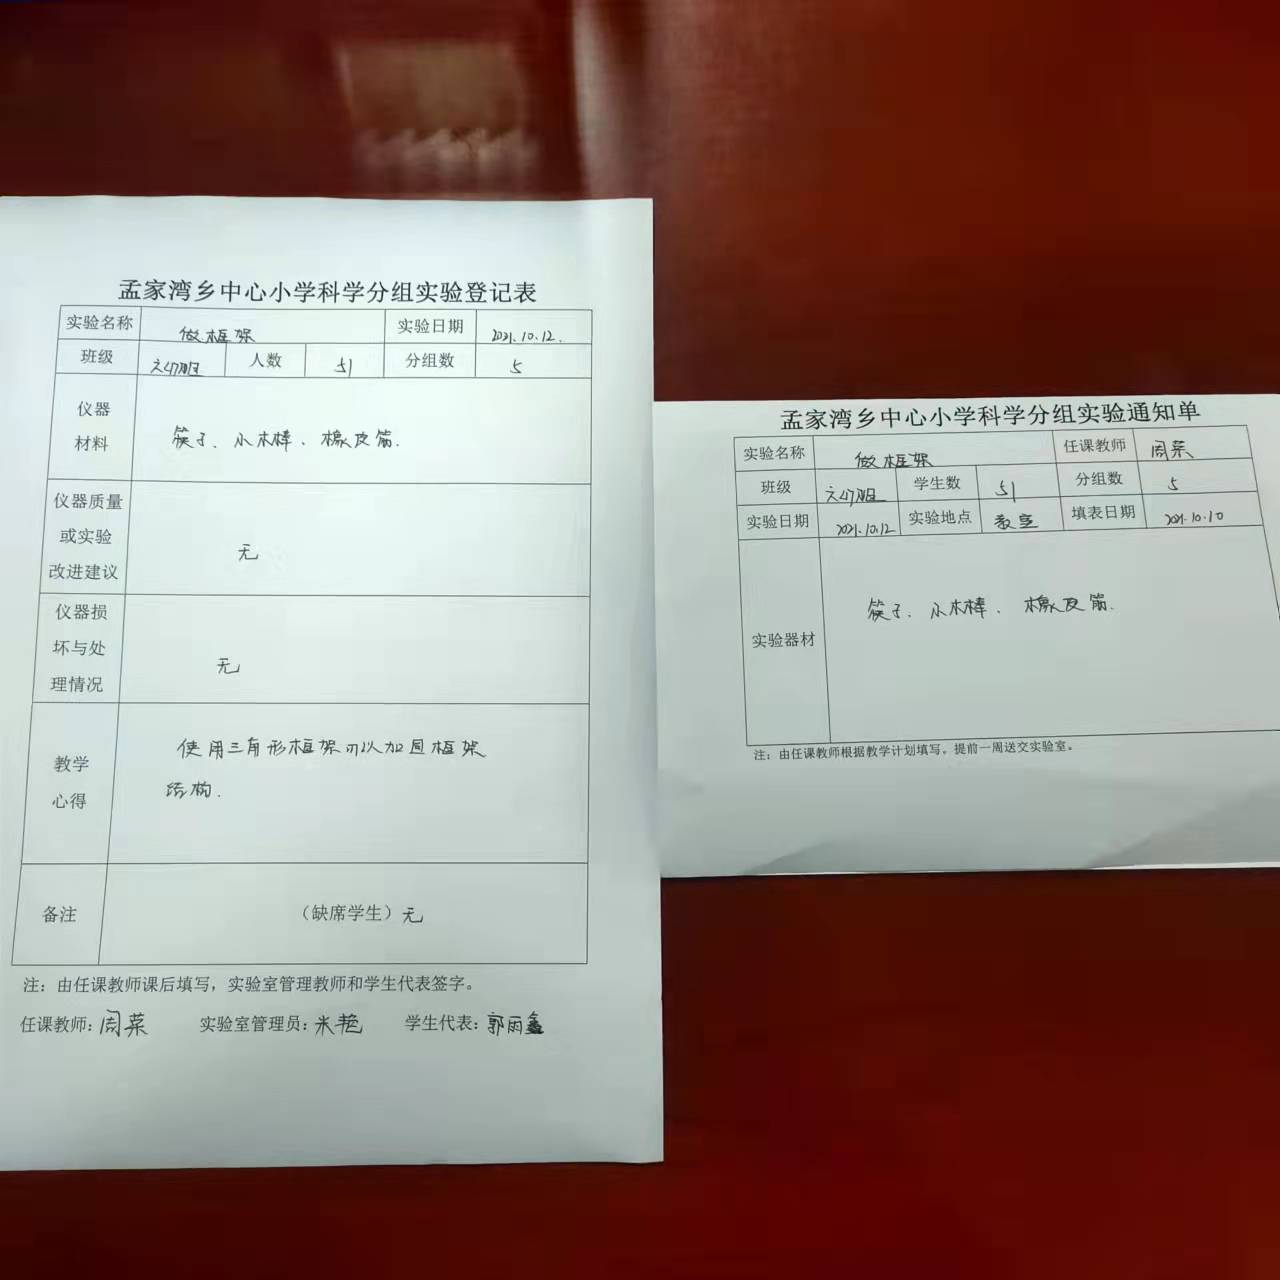 孟家湾乡中心小学科学分组实验登记表
实验名称 做框架 实验日期 2021.10.12.
班级 六4班 人数 51 分组数 5
仪器
材料
筷子、小木棒、橡皮筋.
仪器质量
或实验
改进建议
无
仪器损
坏与处
理情况
无
教学
心得
使用三角形框架可以加固框架
结构.
备注 (缺席学生)无
注：由任课教师课后填写，实验室管理教师和学生代表签字。
任课教师:周菜 实验室管理员:米艳 学生代表:郭雨鑫
孟家湾乡中心小学科学分组实验通知单
实验名称 做框架 任课教师 周菜
班级 六4班 学生数 51 分组数 5
实验日期 2021.10.12 实验地点 教室 填表日期 2021.10.10
实验器材 筷子、小木棒、橡皮筋.
注：由任课教师根据教学计划填写，提前一周送交实验室。